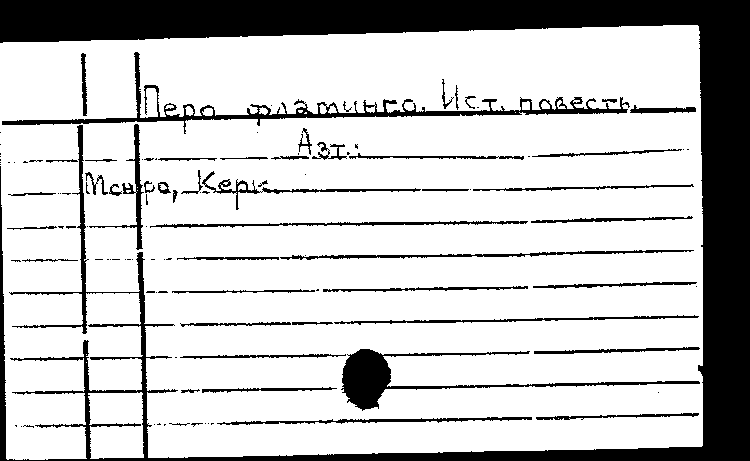 Перо фламинго. Ист. повесть.
Авт.:
Монро, Керк.